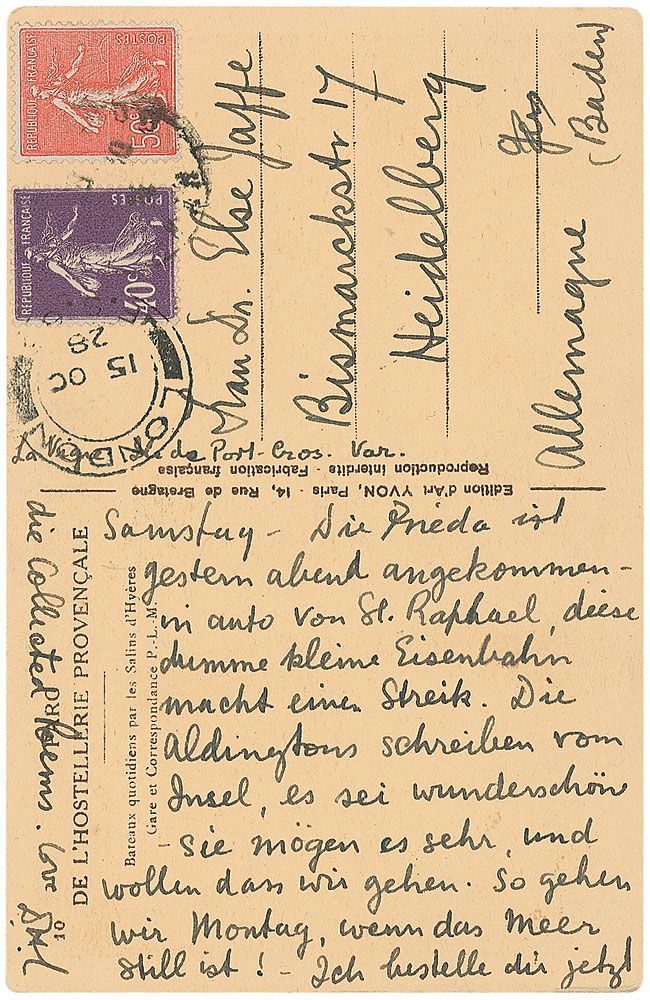 RÉPUBLIQUE FRANÇAISE
POSTES
50c
RÉPUBLIQUE FRANÇAISE
POSTES
40c
LONDON
15 OC
28
Frau Dr. Else Jaffe
Bismarckstr 17
Heidelberg
(Baden)
Allemagne
La Vigie de Port-Cros. Var.
Edition d'Art YVON, Paris - 14, Rue de Bretagne
Reproduction interdite - Fabrication française
DE L'HOSTELLERIE PROVENÇALE
Bateaux quotidiens par les Salins d'Hyères
Gare et Correspondance P.-L.-M.
10
Samstag - Die Frieda ist
gestern abend angekommen -
in auto von St. Raphael, diese
dumme kleine Eisenbahn
macht einen Streik. Die
Aldingtons schreiben vom
Insel, es sei wunderschön
- sie mögen es sehr, und
wollen dass wir gehen. So gehen
wir Montag, wenn das Meer
still ist! - Ich bestelle dir jetzt
die Collected Poems. love
DHL